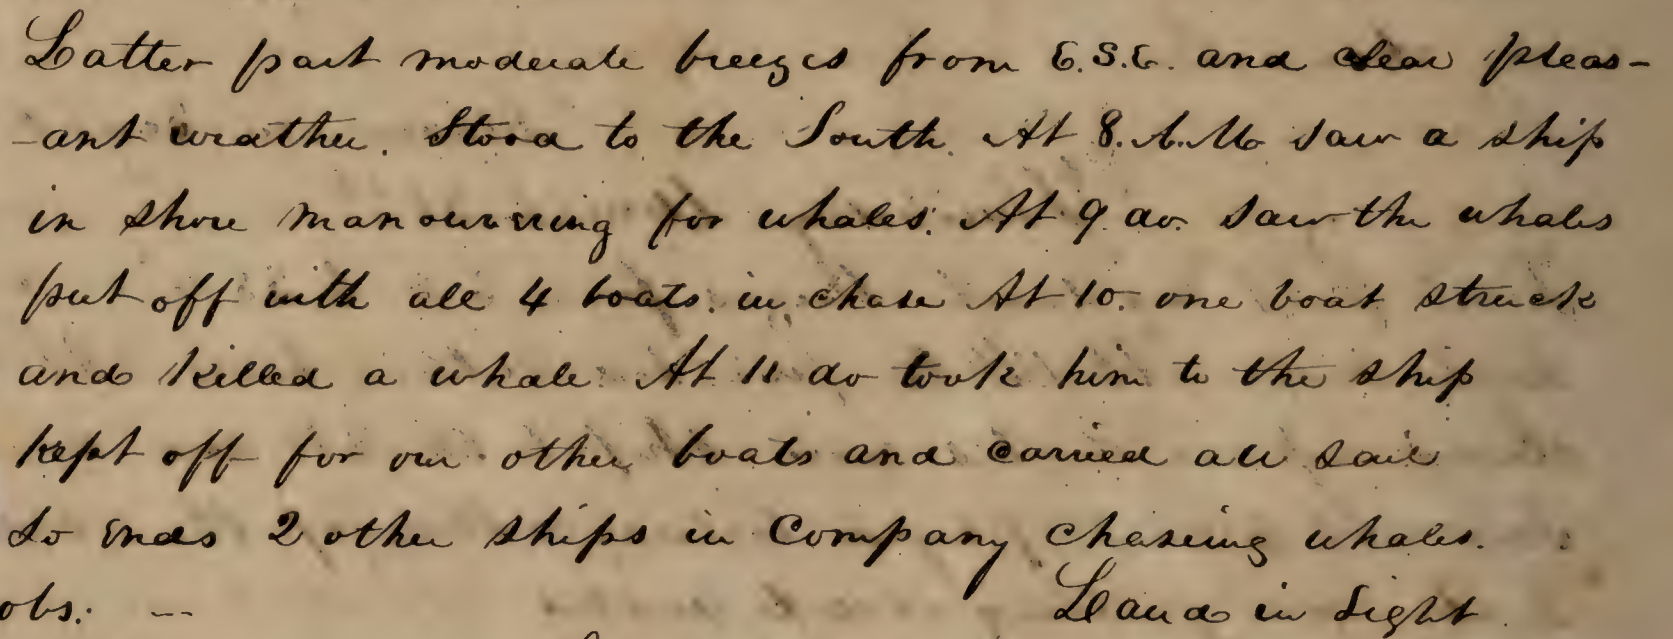 Latter part moderate breezes from E.S.E. and clear pleas-
-ant weather. Stood to the South. At 8. A.M. saw a ship
in shore manouvering for whales. At 9 do. saw the whales
put off with all 4 boats. in chase At 10. one boat struck
and killed a whale. At 11 do took him to the ship
kept off for our other boats and carried all sail
So ends 2 other ships in Company chaseing whales.
obs. --
Land in Sight